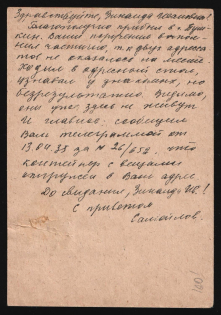 Здравствуйте, Зинаида Исааковна!
Благополучно прибыл в г. Пуш-
кин. Ваши поручения выпол-
нил частично, т.к. двух адреса
тов не оказалось по месту
Ходил в адресный стол,
узнавал у знакомых, но
безрезультатно. Видимо,
они уже здесь не живут
И главное: сообщаем
Вам телеграммой от
13.04.88 за № 26/652 что
контейнер с вещами
отгружен в Ваш адрес
До свидания, Зинаида Ис.!
С приветом
Самойлов.
100!